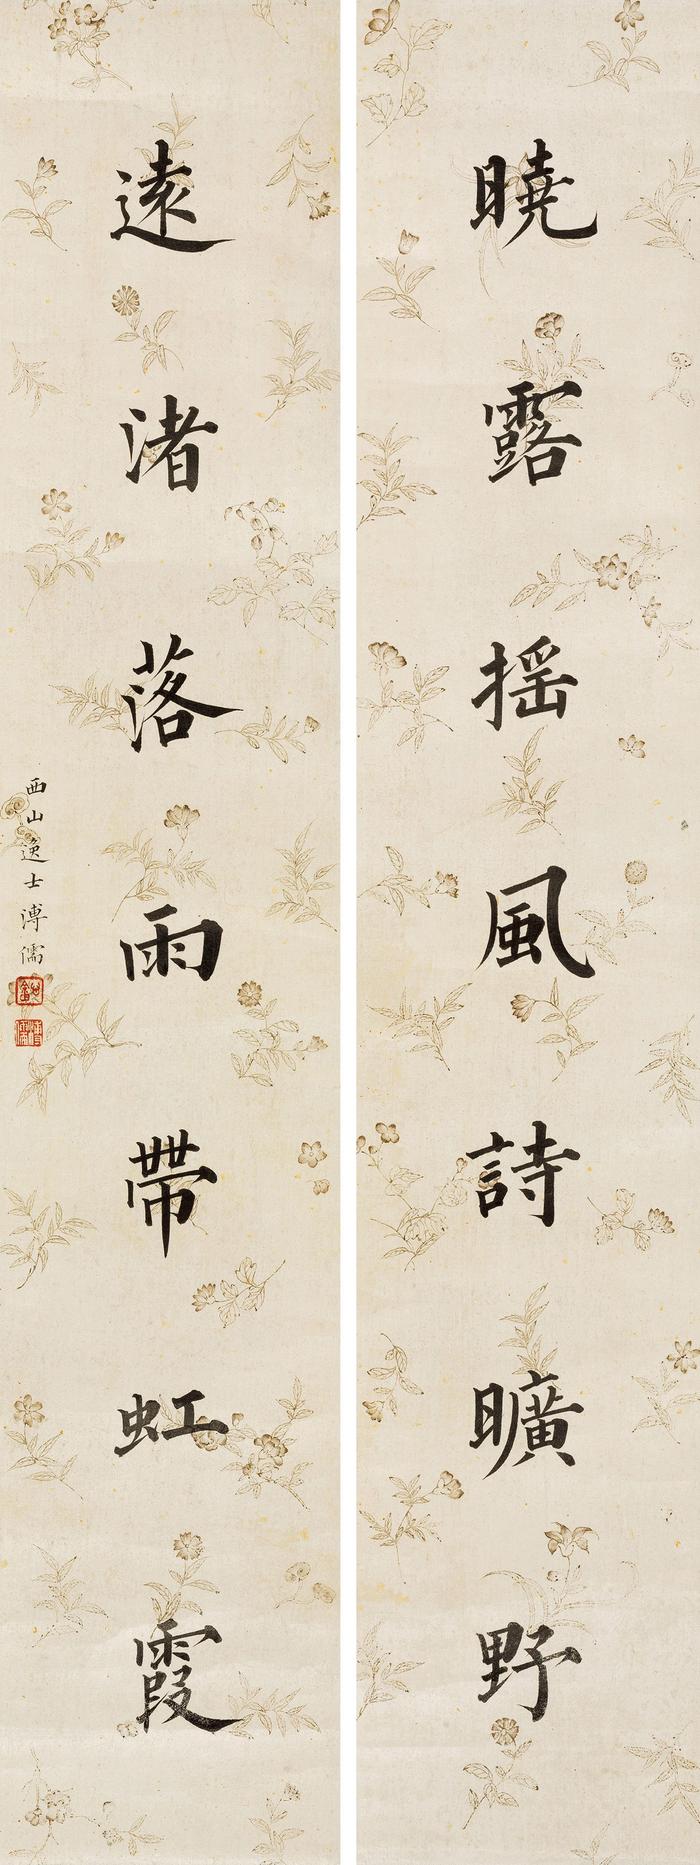 曉露搖風詩曠野
遠渚落雨帶虹霞
西山逸士溥儒